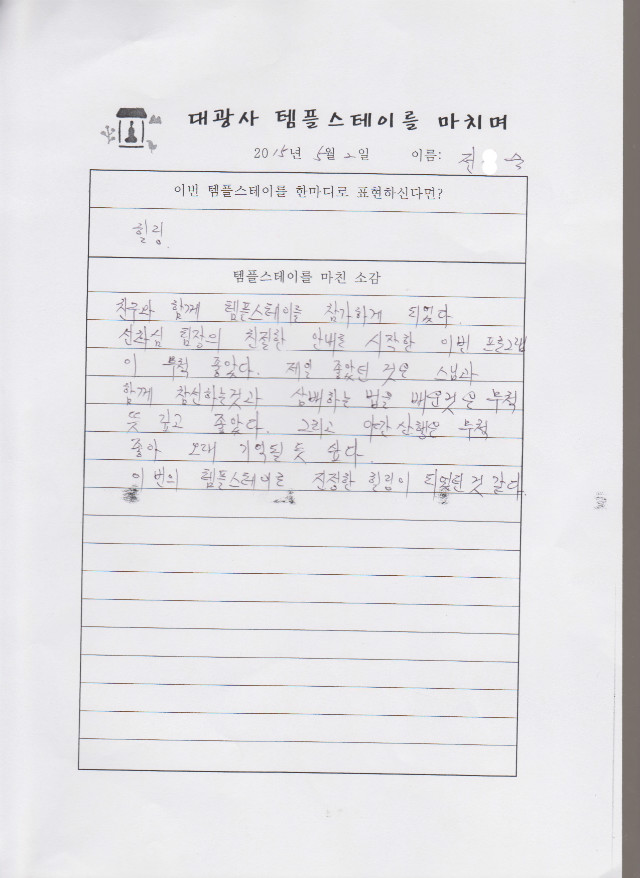 대광사 템플스테이를 마치며
2015년 5월 2일 이름: 전 숙
이번 템플스테이를 한마디로 표현하신다면?
힐링.
템플스테이를 마친 소감
친구와 함께 템플스테이를 참가하게 되었다.
팀장의 친절한 안내로 시작한 이번 프로그램
이 무척 좋았다. 제일 좋았던 것은 스님과
함께 참선하는것과 삼배하는 법을 배운것은 무척
뜻 깊고 좋았다. 그리고 야간산행은 무척
좋아 오래 기억될 듯 싶다.
이번의 템플스테이로 진정한 힐링이 되었던것 같다.